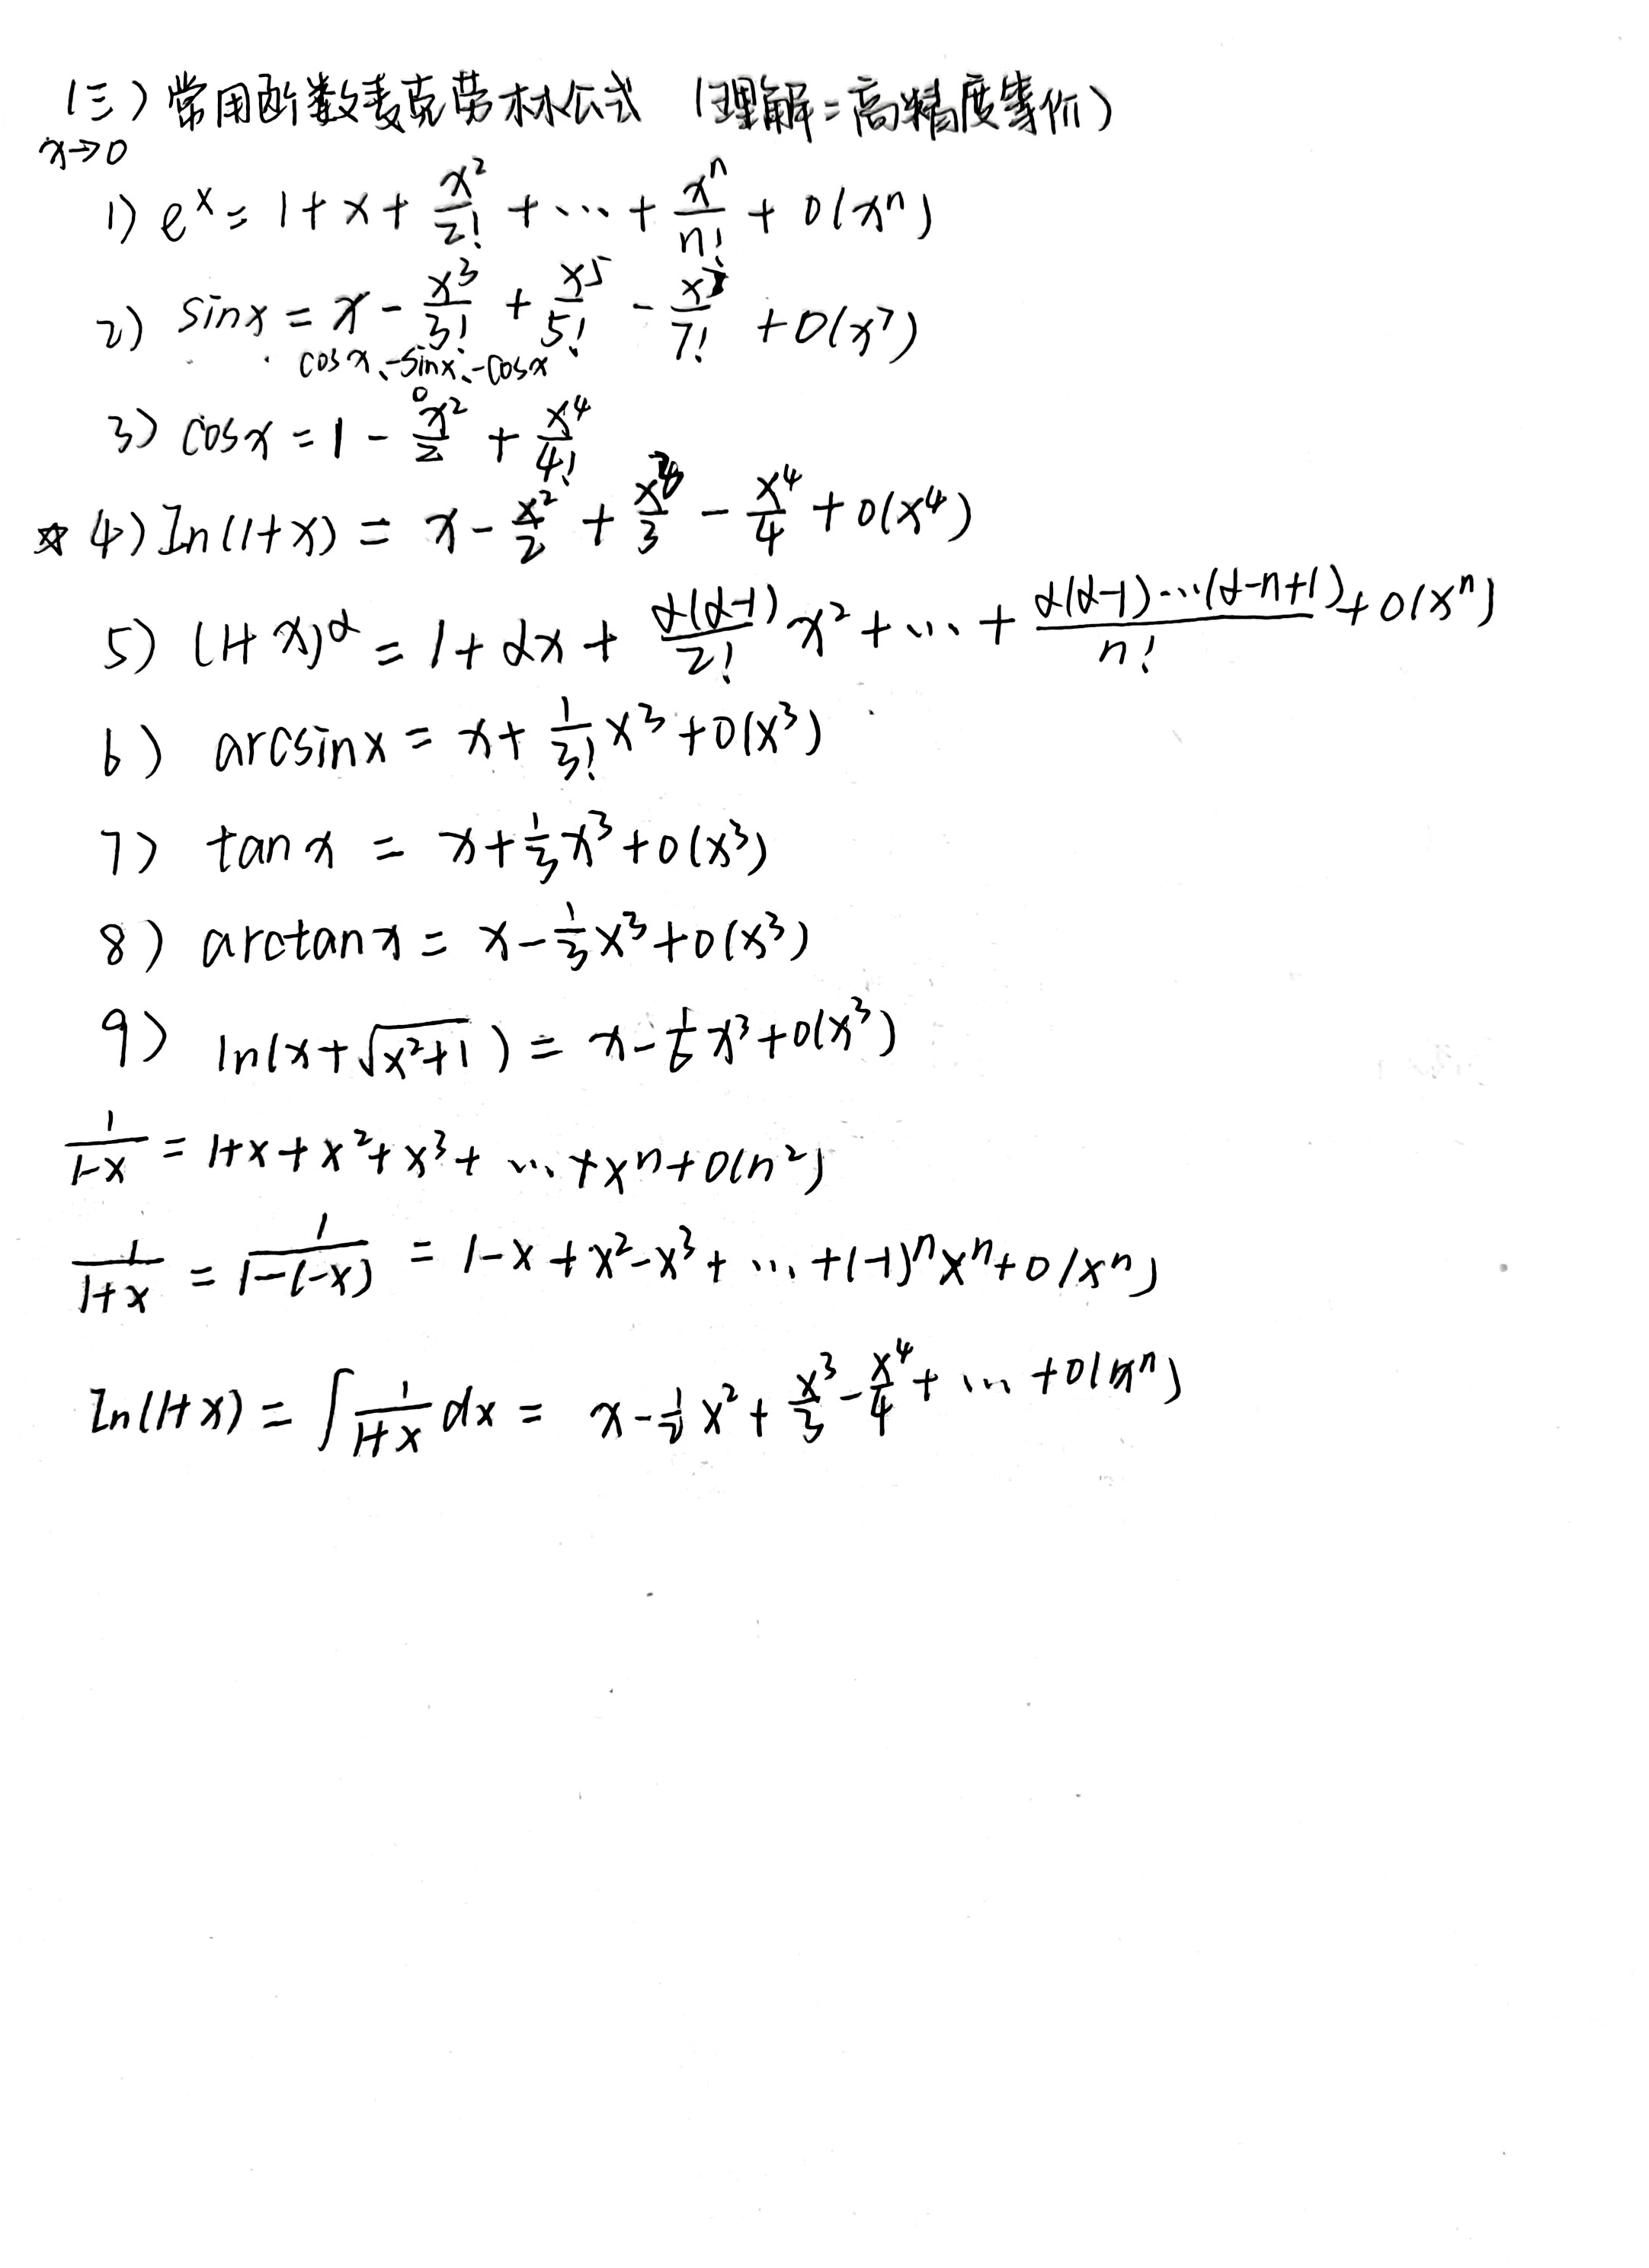 (三)常用函数麦克劳林公式 (理解:高精度等价)
x→0
1) e^x = 1+x+x²/2!+…+x^n/n!+o(x^n)
2) sinx = x-x³/3!+x⁵/5!-x⁷/7!+o(x⁷)
cosx、-sinx、-cosx
0
3) cosx = 1-x²/2+x⁴/4!
☆ 4) ln(1+x) = x-x²/2+x³/3-x⁴/4+o(x⁴)
5) (1+x)^α = 1+αx+α(α-1)/2! x²+…+α(α-1)…(α-n+1)/n!+o(x^n)
6) arcsinx = x+1/3! x³+o(x³)
7) tanx = x+1/3 x³+o(x³)
8) arctanx = x-1/3 x³+o(x³)
9) ln(x+√(x²+1)) = x-1/6 x³+o(x³)
1/(1-x) = 1+x+x²+x³+…+x^n+o(n²)
1/(1+x) = 1/(1-(-x)) = 1-x+x²-x³+…+(-1)^n x^n+o(x^n)
ln(1+x) = ∫1/(1+x) dx = x-1/2 x²+x³/3-x⁴/4+…+o(x^n)